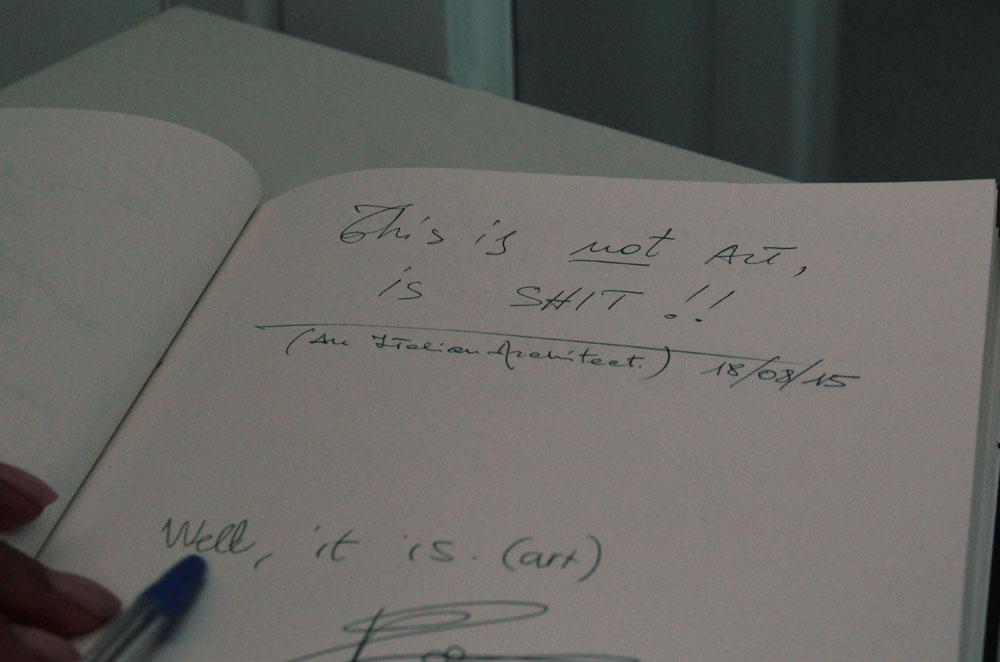 This is not Art,
is SHIT!!
(An Italian Architect.) 18/08/15
Well, it is. (art)